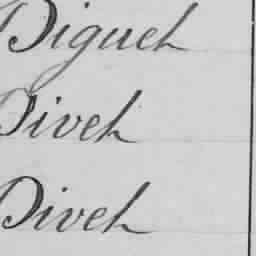 Diguet
Divet
Divet